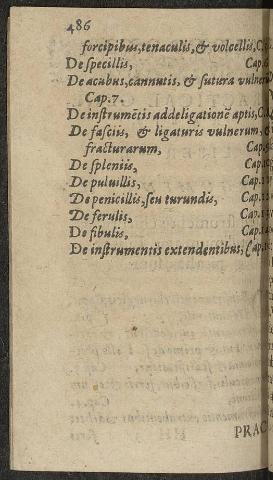 486
forcipibus, tenaculis, & volcellis, C.
De specillis, Cap.
De acubus, cannutis, & sutura vulner
Cap. 7.
De instrumētis ad deligationē aptis, C.
De fasciis, & ligaturis vulnerum,
fracturarum, Cap.
De spleniis, Cap.
De puluillis, Cap.
De penicillis, seu turundis, Cap.
De ferulis, Cap.
De fibulis, Cap.
De instrumentis extendentibus, Cap.
PRAC